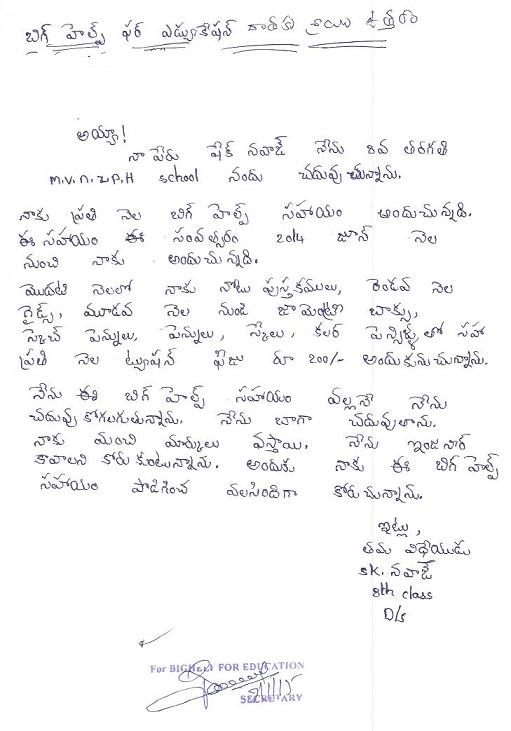 బిగ్ హెల్ప్ ఫర్ ఎడ్యుకేషన్ దాతకు వ్రాయు ఉత్తరం
అయ్యా!
నా పేరు షేక్ నవాజ్ నేను 8వ తరగతి
m.v.n.z.p.H school నందు చదువుచున్నాను.
నాకు ప్రతి నెల బిగ్ హెల్ప్ సహాయం అందుచున్నది.
ఈ సహాయం ఈ సంవత్సరం 2014 జూన్ నెల
నుంచి నాకు అందుచున్నది.
మొదటి నెలలో నాకు నోటు పుస్తకములు, రెండవ నెల
గైడ్స్, మూడవ నెల నుండి జామెంట్రీ బాక్సు,
స్కెచ్ పెన్నులు, పెన్నులు, స్కేలు, కలర్ పెన్సిళ్ళులో సహా
ప్రతి నెల ట్యూషన్ ఫీజు రూ 200/- అందుకునుచున్నాను.
నేను ఈ బిగ్ హెల్ప్ సహాయం వల్లనే నేను
చదువుకోగలుగుతున్నాను. నేను బాగా చదువుతాను.
నాకు మంచి మార్కులు వస్తాయి. నేను ఇంజనీర్
కావాలని కోరుకుంటున్నాను. అందుకు నాకు ఈ బిగ్ హెల్ప్
సహాయం పొడిగించ వలసిందిగా కోరుచున్నాను.
ఇట్లు,
తమ విధేయుడు
sk. నవాజ్
8th class
D/s
For BIGHELP FOR EDUCATION
SECRETARY